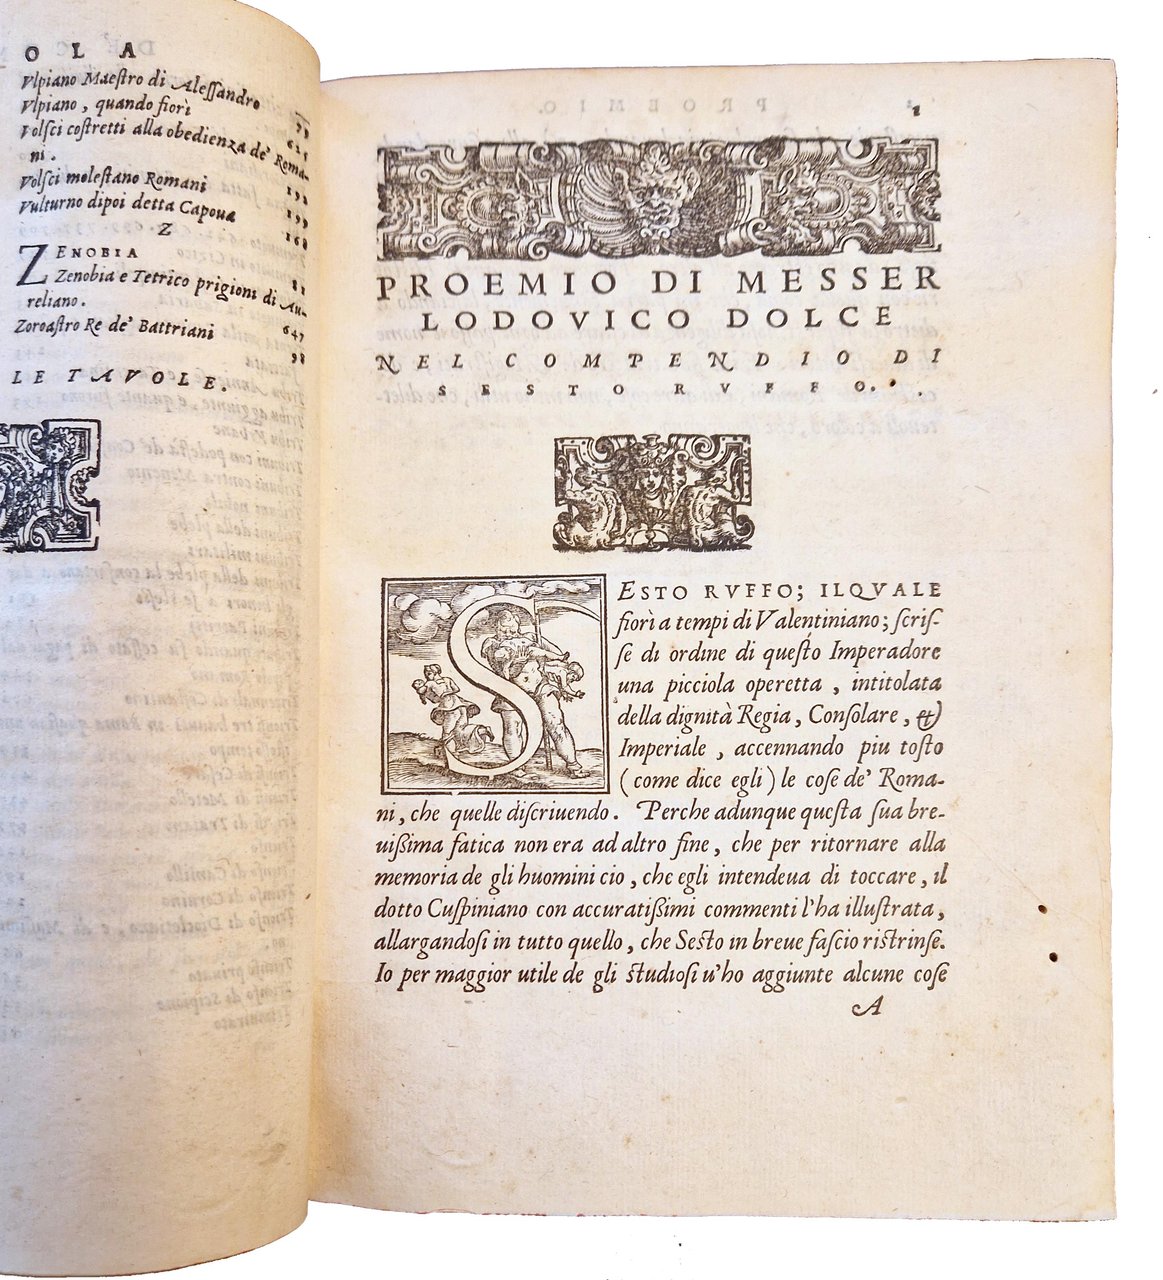 O L A
Vlpiano Maestro di Alessandro 79
Vlpiano, quando fiorì 625
Volsci costretti alla obedienza de' Roma-
ni. 192
Volsci molestano Romani 199
Vulturno dipoi detta Capoua 168
Z
ZENOBIA 82
Zenobia e Tetrico prigioni di Au-
reliano. 647
Zoroastro Re de' Battriani 98
LE TAVOLE.
1
PROEMIO DI MESSER
LODOVICO DOLCE
NEL COMPENDIO DI
SESTO RVFFO.
SESTO RVFFO; ILQVALE
fiorì a tempi di Valentiniano; scris-
se di ordine di questo Imperadore
una picciola operetta, intitolata
della dignità Regia, Consolare, &
Imperiale, accennando piu tosto
(come dice egli) le cose de' Roma-
ni, che quelle discriuendo. Perche adunque questa sua bre-
uißima fatica non era ad altro fine, che per ritornare alla
memoria de gli huomini cio, che egli intendeua di toccare, il
dotto Cuspiniano con accuratißimi commenti l'ha illustrata,
allargandosi in tutto quello, che Sesto in breue fascio ristrinse.
Io per maggior utile de gli studiosi u'ho aggiunte alcune cose
A